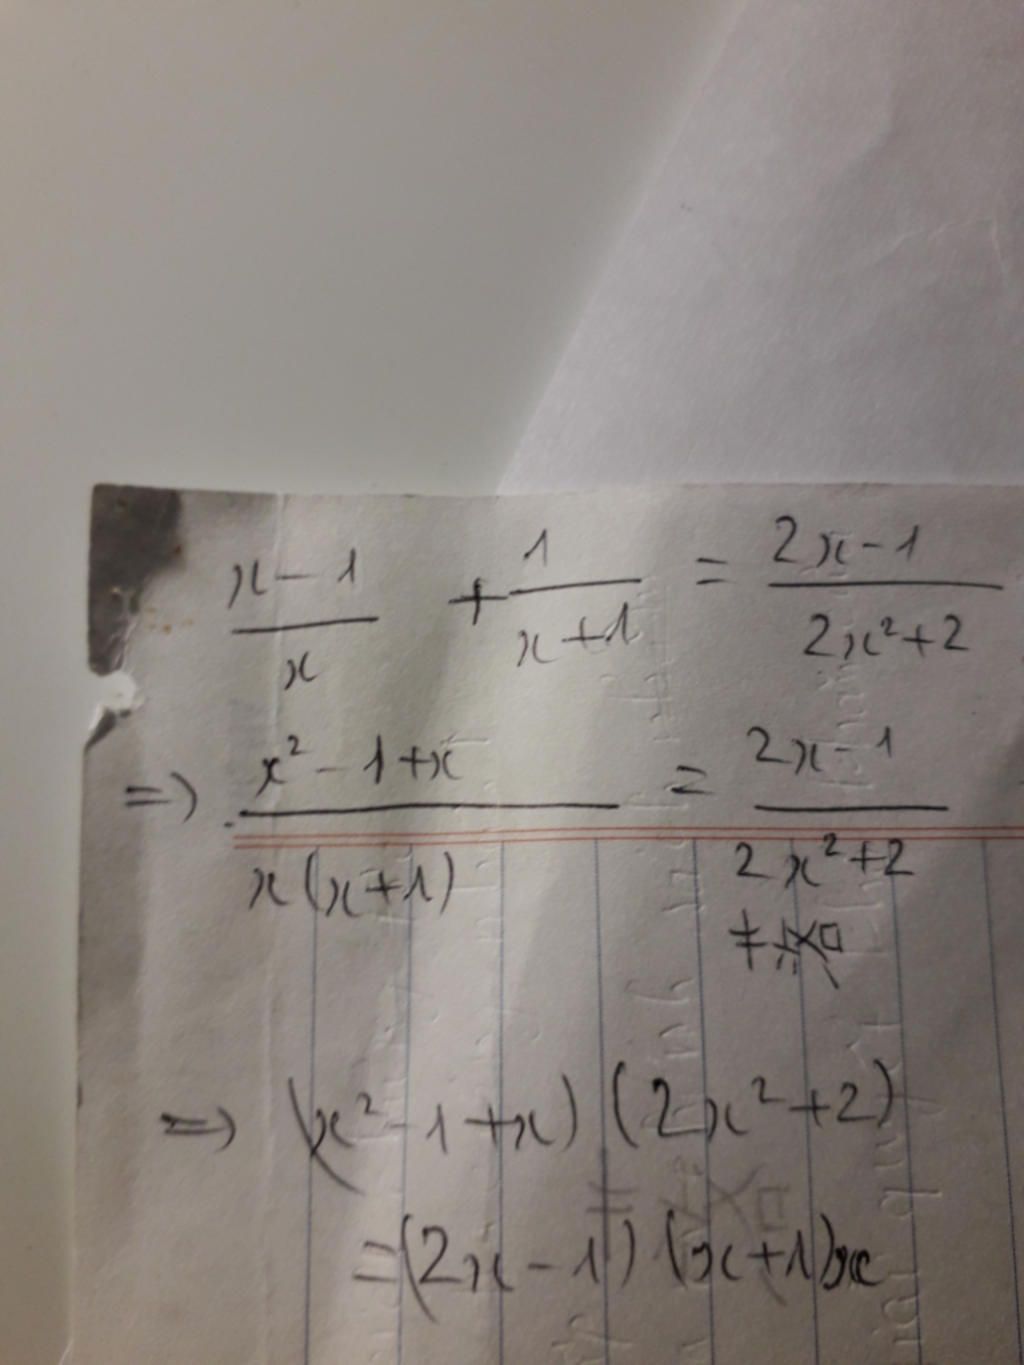 (x-1)/x + 1/(x+1) = (2x-1)/(2x²+2)
=> (x²-1+x)/(x(x+1)) = (2x-1)/(2x²+2)
=> (x²-1+x)(2x²+2)
=(2x-1)(x+1)x